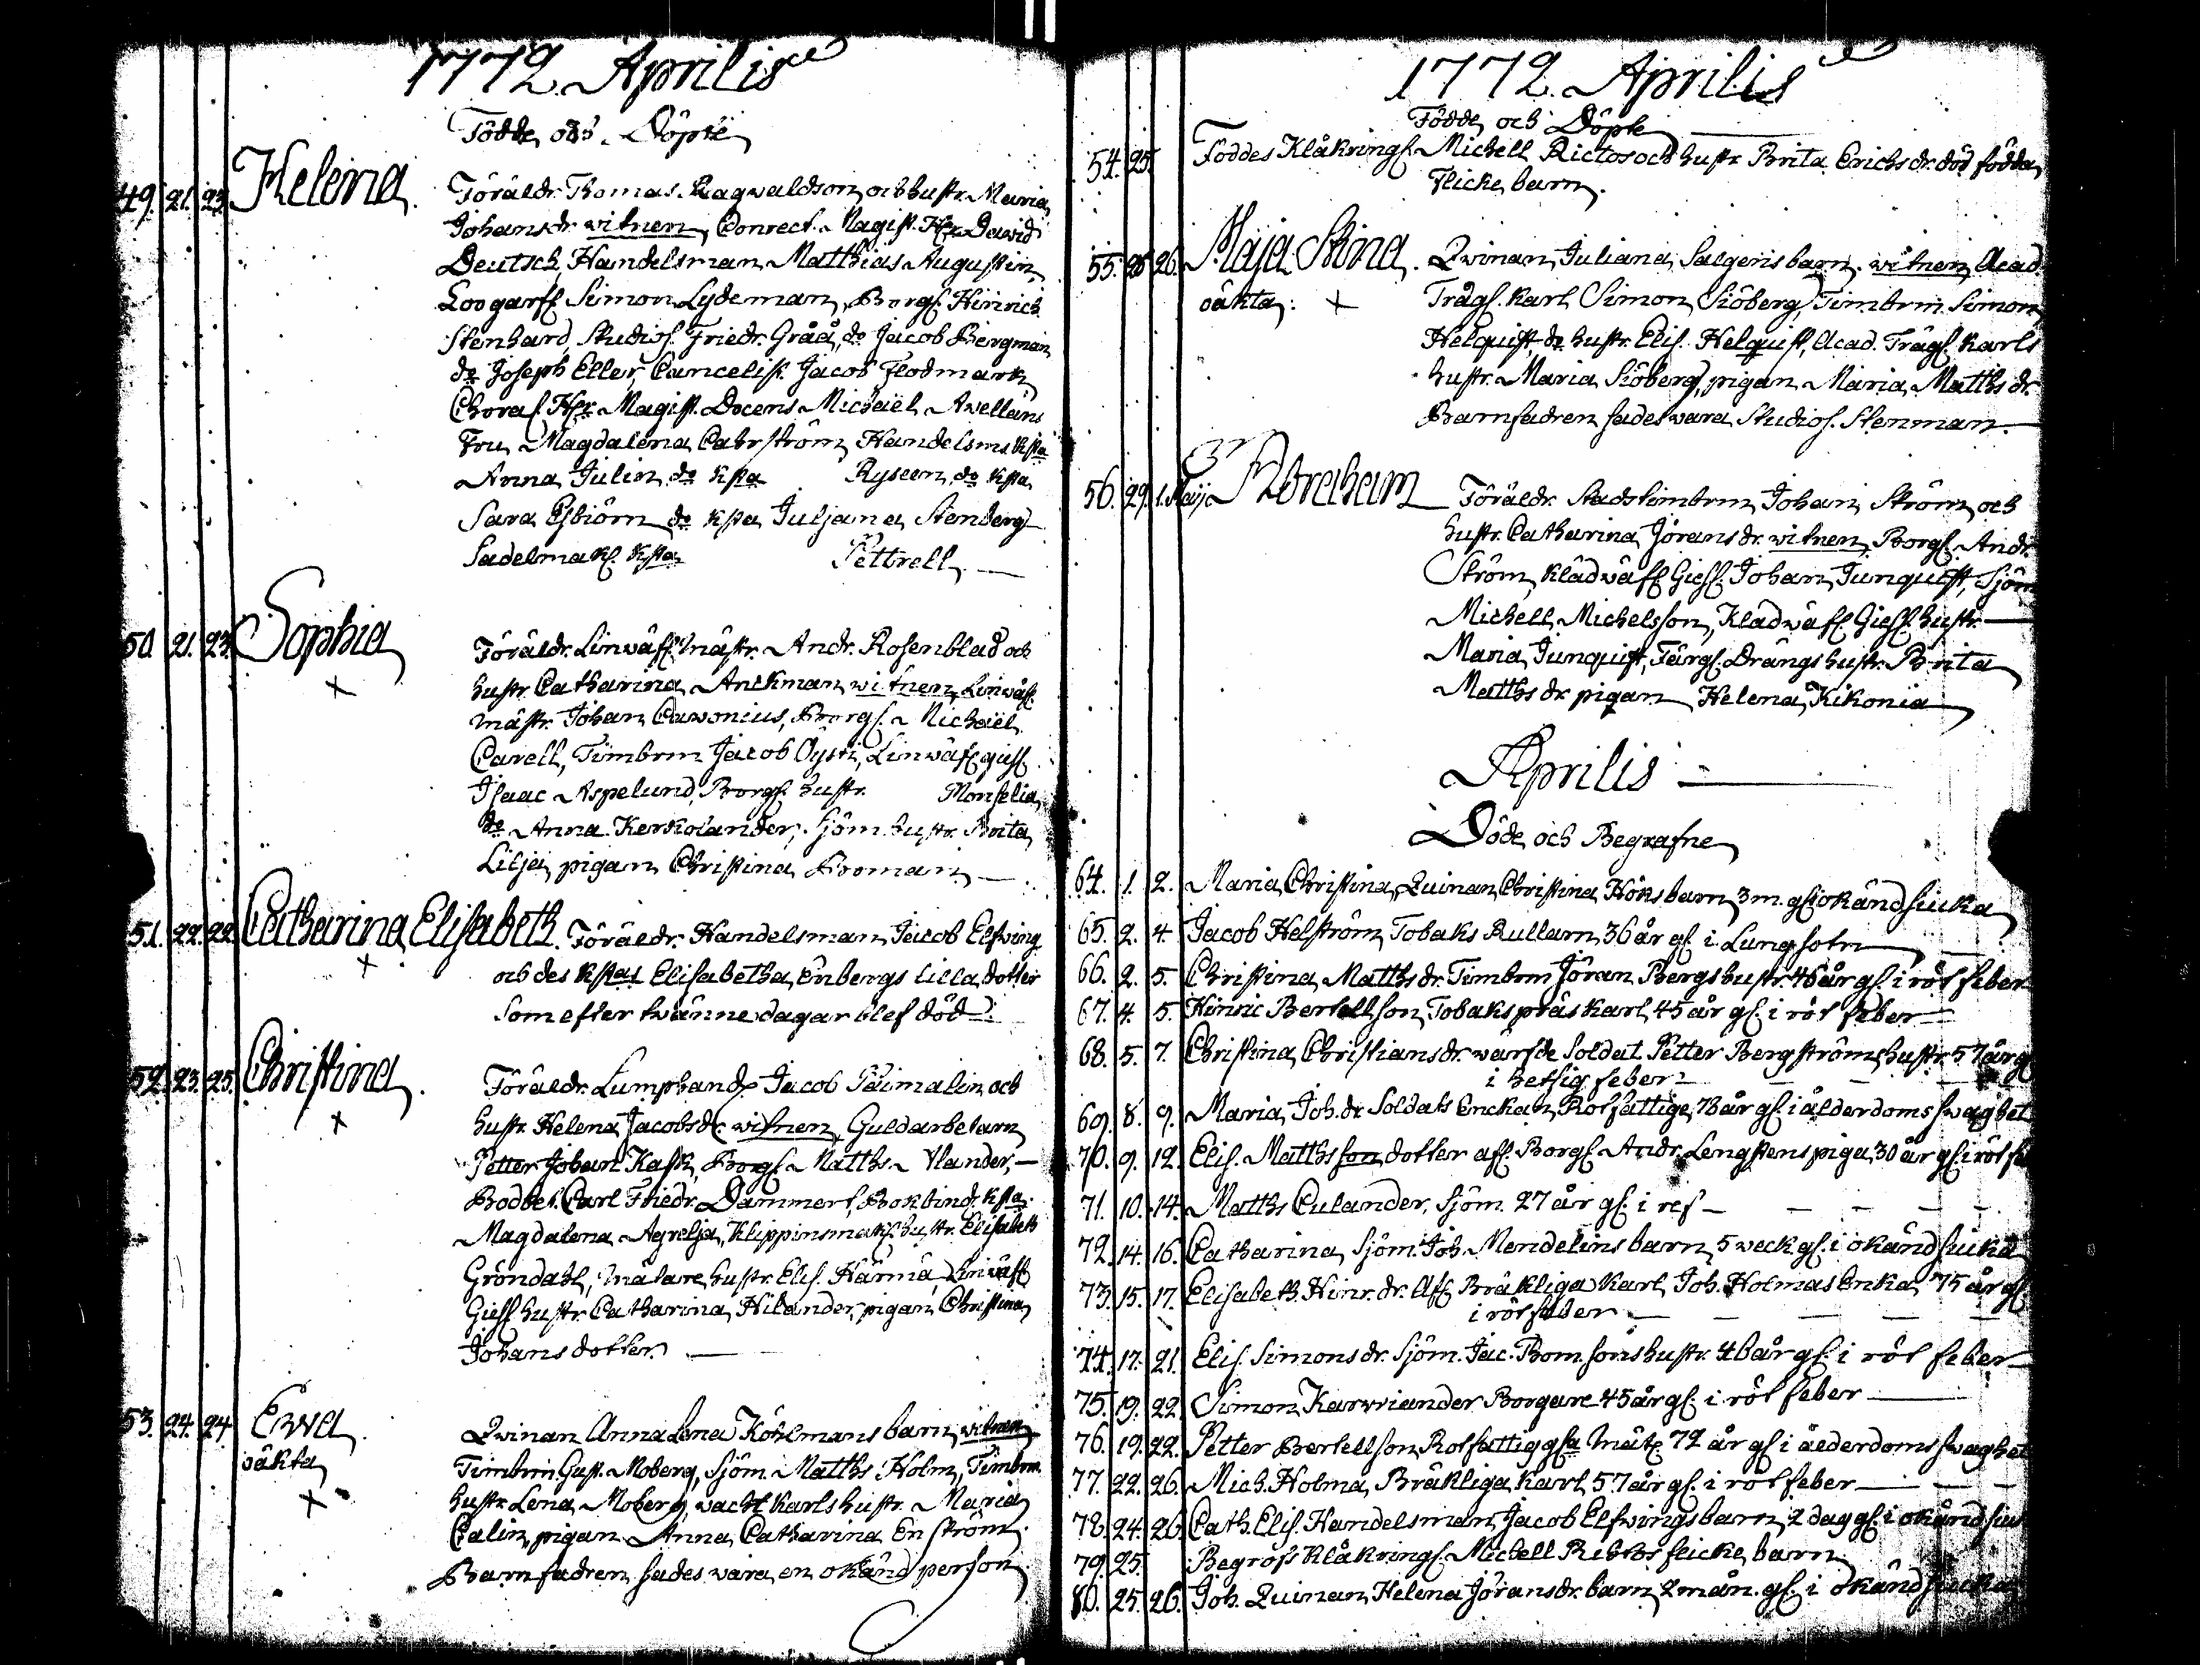 1772 Aprilis
Födde och Döpte
49. 21. 23. Helena. Föräldr. Thomas Ragwaldson och hustr. Maria
Johansdr. witnen, Conrect. Magist. Hr David
Deutsch, Handelsman Matthias Augustin,
Simon Lydeman, Borg. Hinrich
Stenhard, Studios. Friedr. Gråå, do Jacob Bergman
do Joseph Eller, Cancelist. Jacob Flodmark
Hr. Magist. Docens Michaël Avellans
Fru Magdalena Handelsms. ksta
Anna Julin, do ksta Ryseen, do ksta
Sara Esbiörn do ksta Juljana Stenberg
Sadelmak. ksta Pettrell
50. 21. 23. Sophia Föräldr. Linwäf. mästr. Andr. Rosenblad och
hustr. Catharina Anckman witnen, Linwäf.
mästr. Johan Cawonius, Borg. Michaël
Carell, Timbrm. Jacob Öysti, Linwäf. gies.
Isaac Aspelund, Borg. hustr. Monselia,
do Anna Kerkolander, Sjöm. hustr. Brita
Lilja, pigan Christina Froman
51. 22. 22. Catharina Elisabeth. Föräldr. Handelsman Jacob Elfwing
och des kstas Elisabetha Enbergs lilla dotter
som efter twänne dagar blef död
52. 23. 25. Christina. Föräldr. Lumphand. Jacob Päimalin och
hustr. Helena Jacobsdr. witnen, Guldarbetarn
Petter Johan Kask, Borg. Matths. Ulander,
Bodbet. Carl Friedr. Dammert, Bokbind. ksta.
Magdalena Agrelja, Klippinsmak. hustr. Elisabeth
Gröndahl, Mätare hustr. Elis. Härmä, Linwäf.
Gies. hustr. Catharina Hilander, pigan Christina
Johans dotter.
53. 24. 24. Ewa Qwinan Anna Lena Köhlmans barn, witnen
oäkta Timbrm. Gust. Moberg, Sjöm. Matths Holm, Timbrm.
hustr. Lena Moberg, wacht Karls hustr. Maria
Calin, pigan Anna Catharina Enström.
Barnfadren sades wara en okänd person
1772 Aprilis
Födde och Döpte
54. 25. Föddes Klåkring. Michell Rictos och hustr. Brita Erichsdr. död födda
flicke barn.
55. 26. 26. Maja Stina. Qwinan Juliana Salgens barn. witnen, Acad.
oäkta Trägs. Karl Simon Siöberg, Timbrm. Simon
Helquist, do hustr. Elis. Helquist, Acad. Trägs. Karls
hustr. Maria Siöberg, pigan Maria Matths dr.
Barnfadren sades wara Studios. Stenman.
56. 29. 1. Maij Abraham Föräldr. Stadstimbrm. Johan Ström och
hustr. Catharina Jöransdr. witnen, Borg. Andr.
Ström, Klädwäf. Gies. Johan Junquist, Sjöm
Michell Michelsson, Klädwäf. Gies. hustr.
Maria Junquist, Färg. Drängs hustr. Brita
Matths dr. pigan Helena Kikonia
Aprilis
Döde och Begrafne
64. 1. 2. Maria Christina, Quinan Christina Höks barn 3 m. gl. i okänd siucka
65. 2. 4. Jacob Helström Tobaks Rullarn 36 år gl. i Lungsoten
66. 2. 5. Christina Matthsdr. Timbrm Jöran Bergs hustr. 46 år gl. i röt feber
67. 4. 5. Hinric Bertellson, Tobaks präs karl, 45 år gl. i röt feber
68. 5. 7. Christina Christiansdr. warfde Soldat Petter Bergströms hustr. 57 år gl.
i hetsig feber
69. 8. 9. Maria Joh.dr. Soldats Enckan, Rotfattige 78 år gl. i ålderdoms swaghet
70. 9. 12. Elis. Matthsson dotter aff. Borg. Andr. Lengstens piga 30 år gl. i röt fe
71. 10. 14. Matths Eulander, Sjöm. 27 år gl. i ref
72. 14. 16. Catharina, Sjöm. Joh. Mendelins barn, 5 weck gl. i okänd siucka
73. 15. 17. Elisabeth Hinr. dr. Aff. Bräkliga Karl Joh. Holmas Enka, 75 år gl.
i röt feber
74. 17. 21. Elis. Simons dr. Sjöm. Jac. Thomsons hustr. 46 år gl. i röt feber
75. 19. 22. Simon Karwiander Borgare 45 år gl. i röt feber
76. 19. 22. Petter Bertellson, Rotfattig 72 år gl. i ålderdoms swaghet
77. 22. 26. Mich. Holma, Bräkliga Karl 57 år gl. i röt feber
78. 24. 26. Cath. Elis. Handelsman Jacob Elfwings barn, 2 dag gl. i okänd siu
79. 25. Begrofs Klåkring. Michell Rictos flicke barn
80. 25. 26. Joh. Quinan Helena Jöransdr. barn 2 mån. gl. i okänd siucka